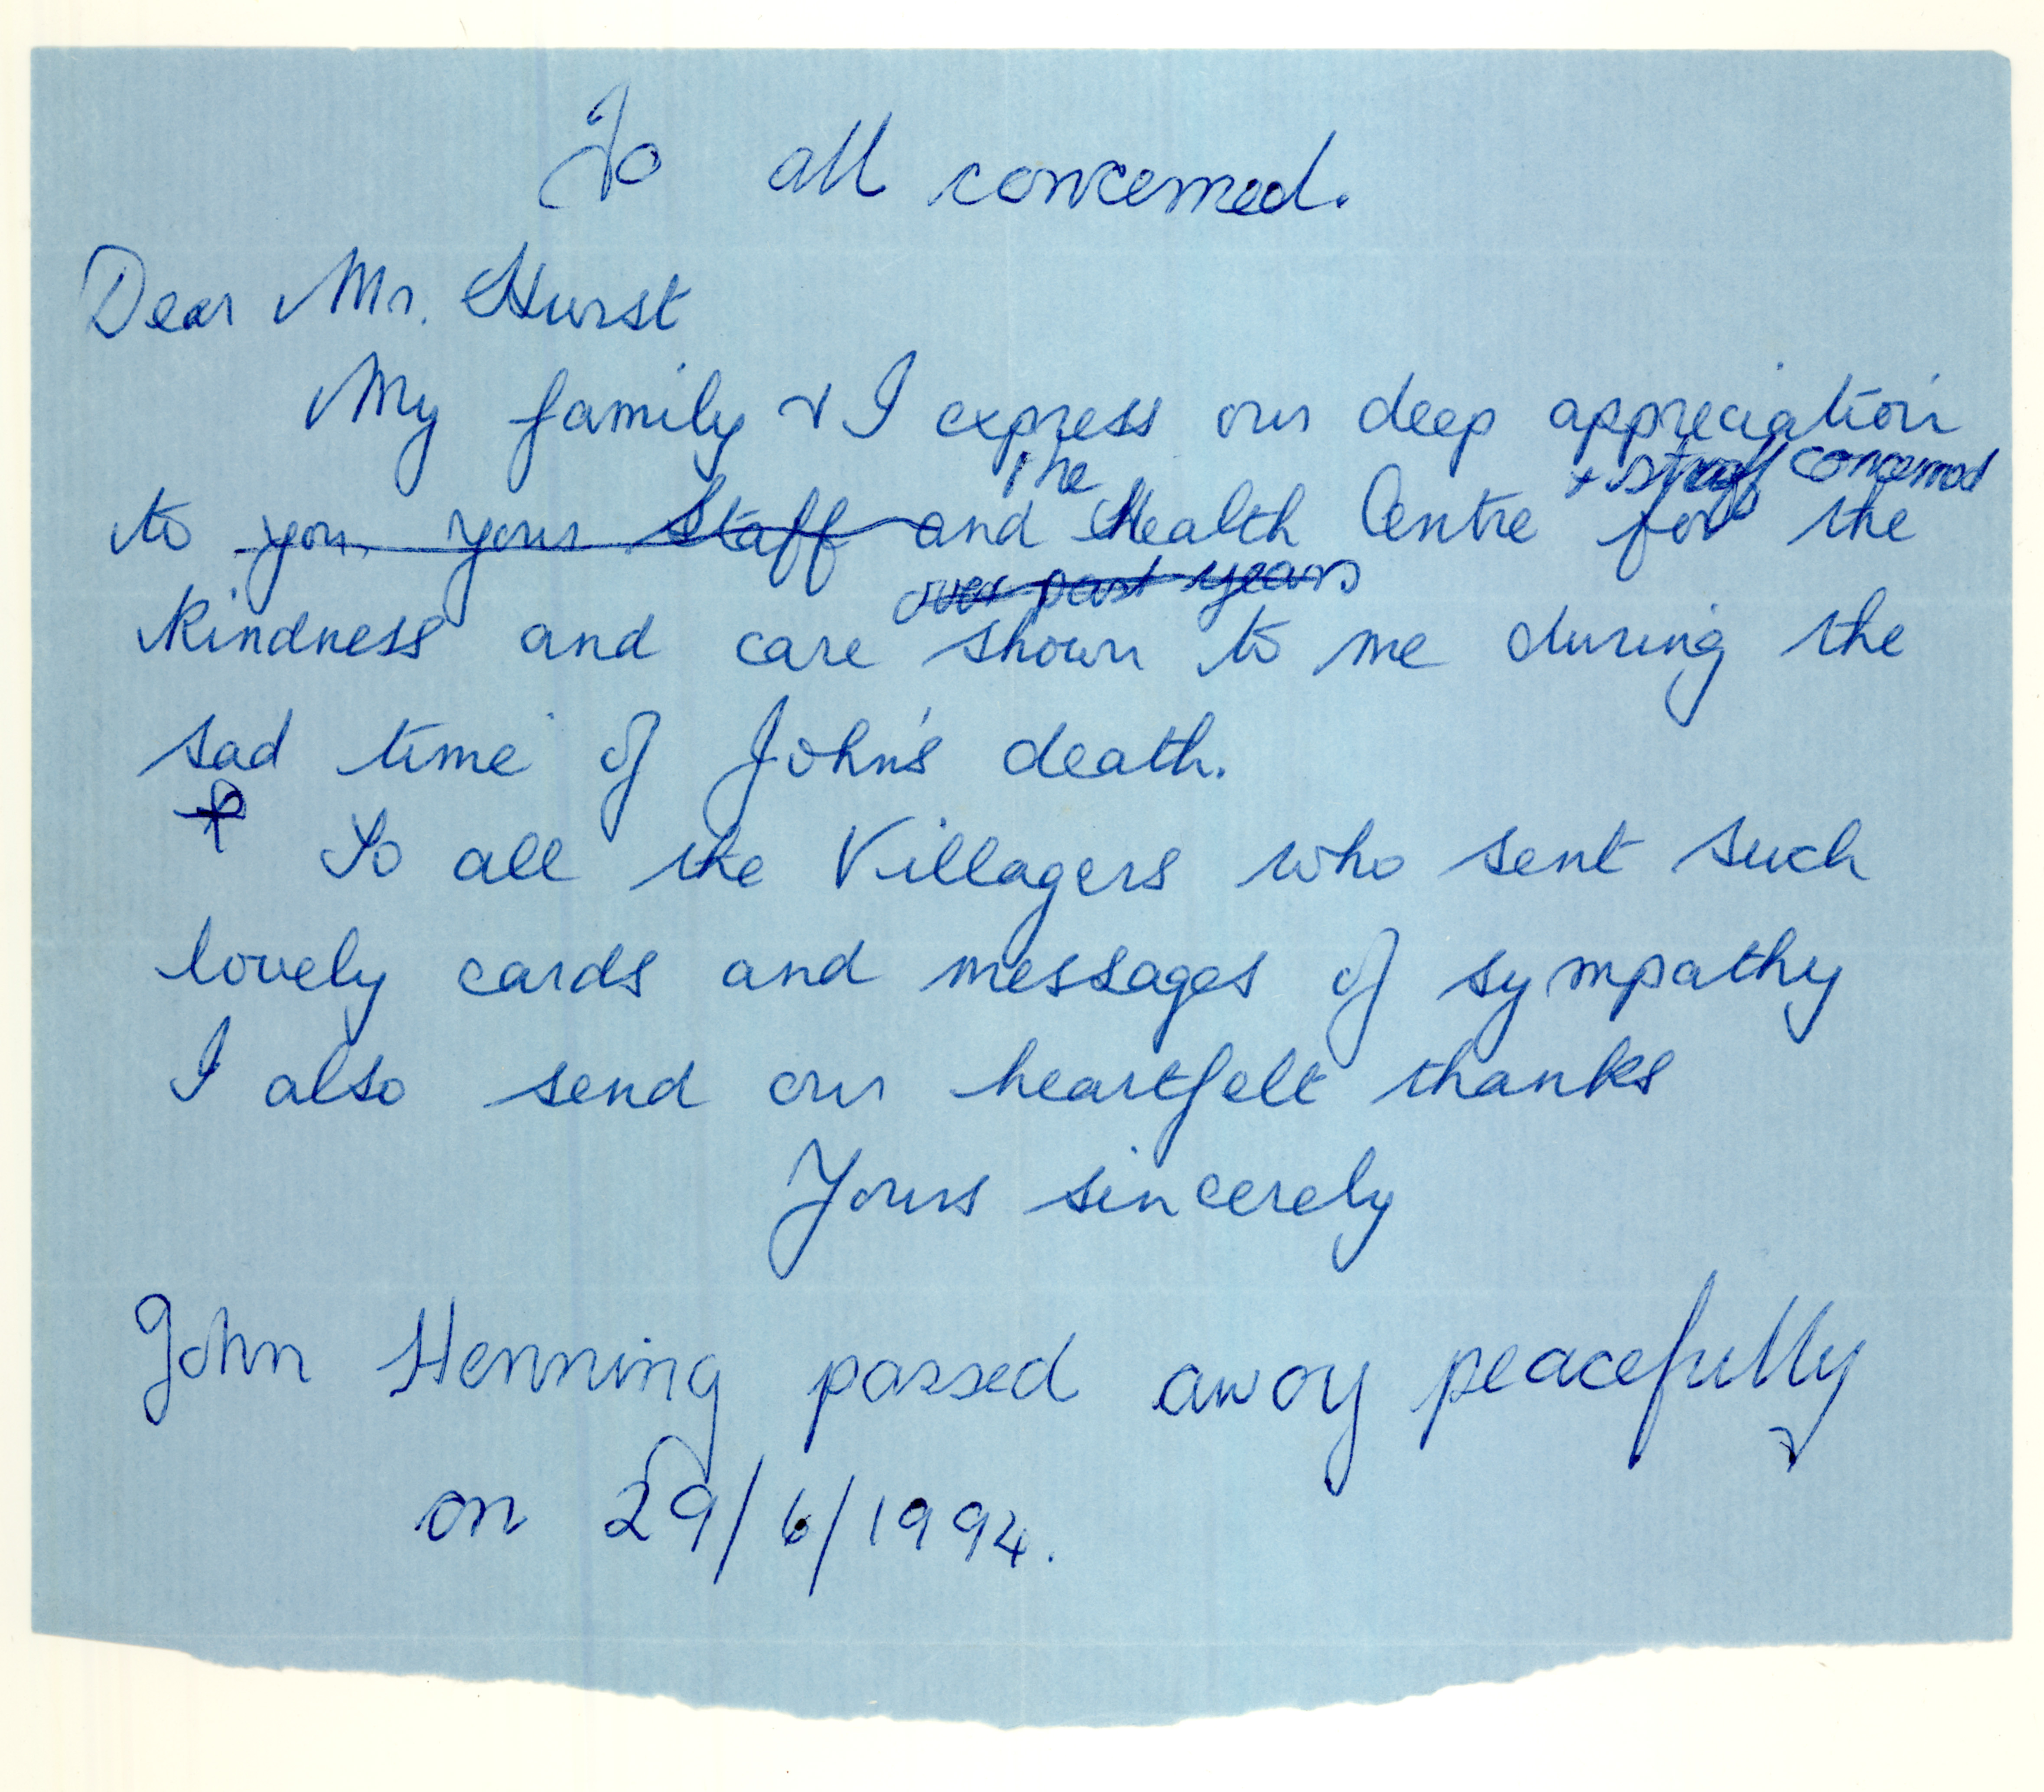 To all concerned.
Dear Mr. Hurst
My family & I express our deep appreciation
the + staff concerned
to you, your Staff and Health Centre for the
over past years
kindness and care shown to me during the
sad time of John's death.
To all the Villagers who sent such
lovely cards and messages of sympathy
I also send our heartfelt thanks
Yours sincerely
John Henning passed away peacefully
on 29/6/1994.